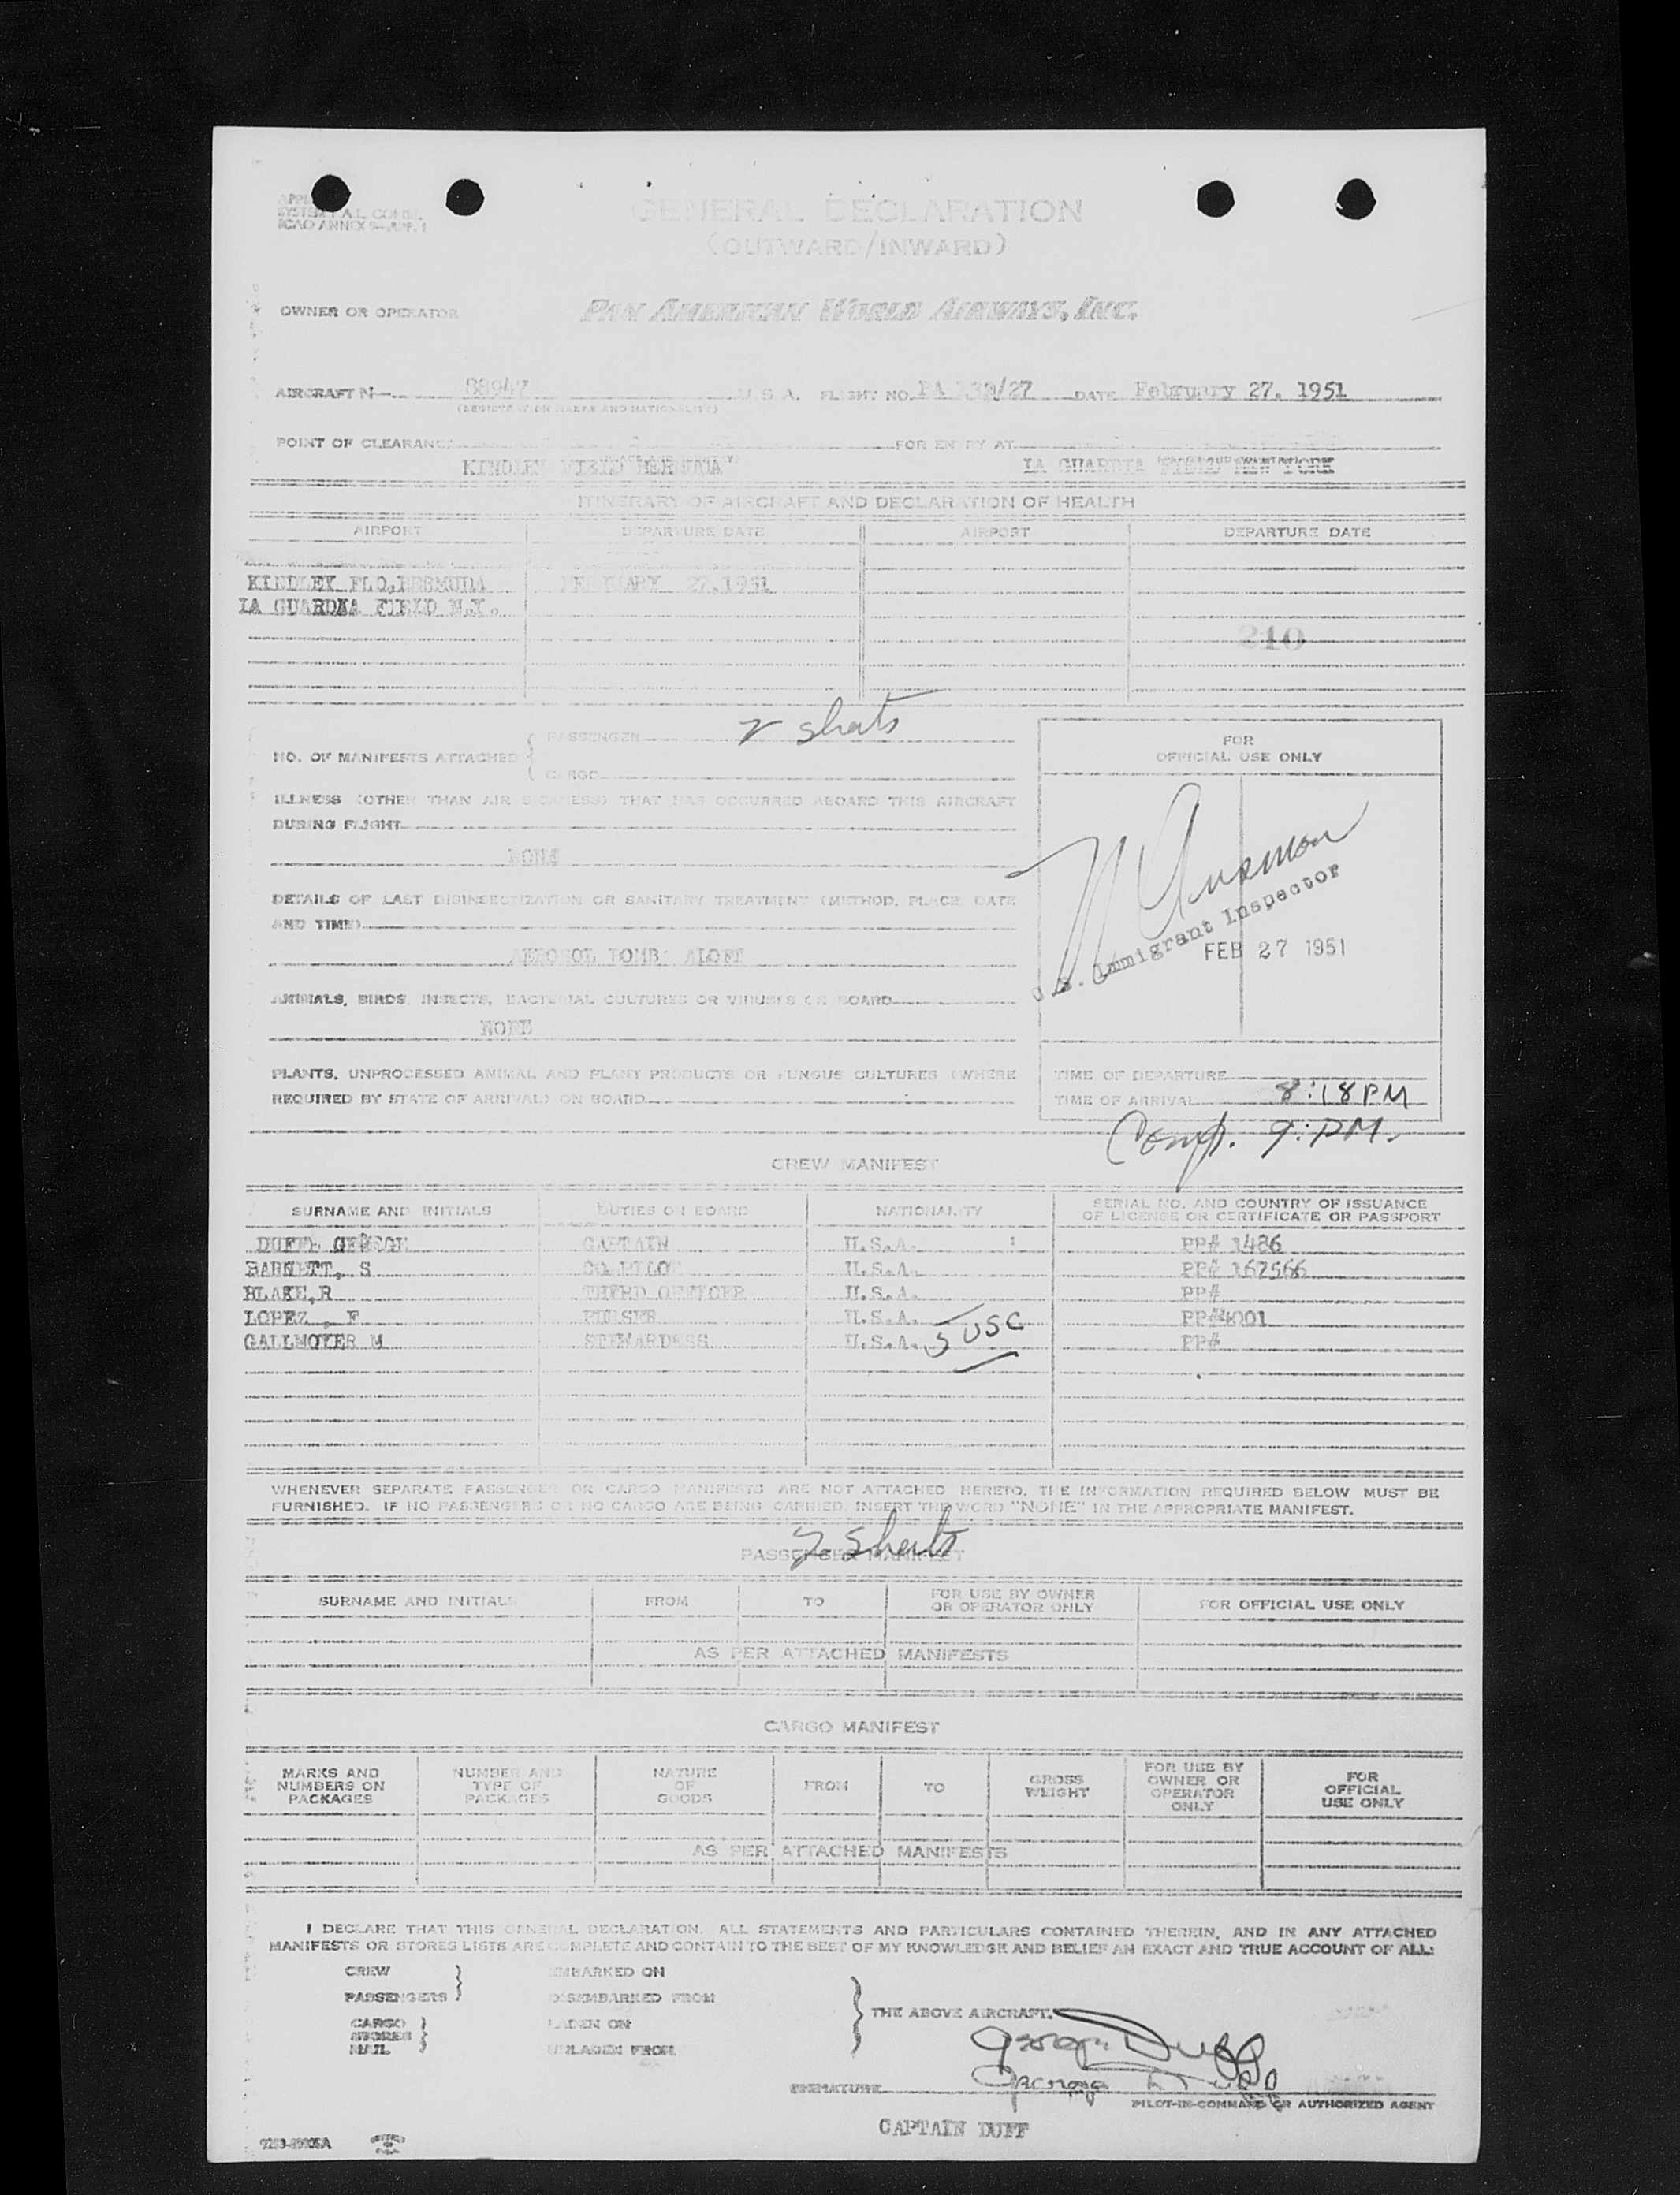 GENERAL DECLARATION
(OUTWARD/INWARD)
OWNER OR OPERATOR PAN AMERICAN WORLD AIRWAYS, INC.
AIRCRAFT N 88947 U. S. A. FLIGHT NO. PA /27 DATE February 27, 1951
(REGISTRATION MARKS AND NATIONALITY)
POINT OF CLEARANCE FOR ENTRY AT
KINDLEY FIELD BERMUDA LA GUARDIA FIELD NEW YORK
ITINERARY OF AIRCRAFT AND DECLARATION OF HEALTH
AIRPORT DEPARTURE DATE AIRPORT DEPARTURE DATE
KINDLEY FLD, BERMUDA FEBRUARY 27, 1951
LA GUARDIA FIELD N.Y.
210
2 sheets
PASSENGER
NO. OF MANIFESTS ATTACHED
CARGO
FOR
OFFICIAL USE ONLY
ILLNESS (OTHER THAN AIR SICKNESS) THAT HAS OCCURRED ABOARD THIS AIRCRAFT
DURING FLIGHT
NONE
DETAILS OF LAST DISINSECTIZATION OR SANITARY TREATMENT (METHOD, PLACE, DATE
AND TIME)
AEROSOL BOMB ALOFT
Immigrant Inspector
FEB 27 1951
ANIMALS, BIRDS, INSECTS, BACTERIAL CULTURES OR VIRUSES ON BOARD
NONE
PLANTS, UNPROCESSED ANIMAL AND PLANT PRODUCTS OR FUNGUS CULTURES (WHERE
REQUIRED BY STATE OF ARRIVAL) ON BOARD
TIME OF DEPARTURE
TIME OF ARRIVAL 8:18 PM
Comp. 9: PM.
CREW MANIFEST
SURNAME AND INITIALS DUTIES ON BOARD NATIONALITY SERIAL NO. AND COUNTRY OF ISSUANCE
OF LICENSE OR CERTIFICATE OR PASSPORT
DUFF, GEORGE CAPTAIN U.S.A. PP# 1486
BARNETT, S CO PILOT U.S.A. PP# 167566
BLAKE, R THIRD OFFICER U.S.A. PP#
LOPEZ , F PURSER U.S.A. PP#4001
GALLMOYER M STEWARDESS U.S.A. PP#
5 USC
WHENEVER SEPARATE PASSENGER OR CARGO MANIFESTS ARE NOT ATTACHED HERETO, THE INFORMATION REQUIRED BELOW MUST BE
FURNISHED. IF NO PASSENGERS OR NO CARGO ARE BEING CARRIED, INSERT THE WORD "NONE" IN THE APPROPRIATE MANIFEST.
2 sheets
PASSENGER MANIFEST
SURNAME AND INITIALS FROM TO FOR USE BY OWNER OR OPERATOR ONLY FOR OFFICIAL USE ONLY
AS PER ATTACHED MANIFESTS
CARGO MANIFEST
MARKS AND NUMBERS ON PACKAGES NUMBER AND TYPE OF PACKAGES NATURE OF GOODS FROM TO GROSS WEIGHT FOR USE BY OWNER OR OPERATOR ONLY FOR OFFICIAL USE ONLY
AS PER ATTACHED MANIFESTS
I DECLARE THAT THIS GENERAL DECLARATION, ALL STATEMENTS AND PARTICULARS CONTAINED THEREIN, AND IN ANY ATTACHED
MANIFESTS OR STORES LISTS ARE COMPLETE AND CONTAIN TO THE BEST OF MY KNOWLEDGE AND BELIEF AN EXACT AND TRUE ACCOUNT OF ALL:
CREW EMBARKED ON
PASSENGERS DISEMBARKED FROM
THE ABOVE AIRCRAFT.
CARGO LADEN ON
STORES
MAIL UNLADEN FROM
George Duff
SIGNATURE
PILOT-IN-COMMAND OR AUTHORIZED AGENT
CAPTAIN DUFF